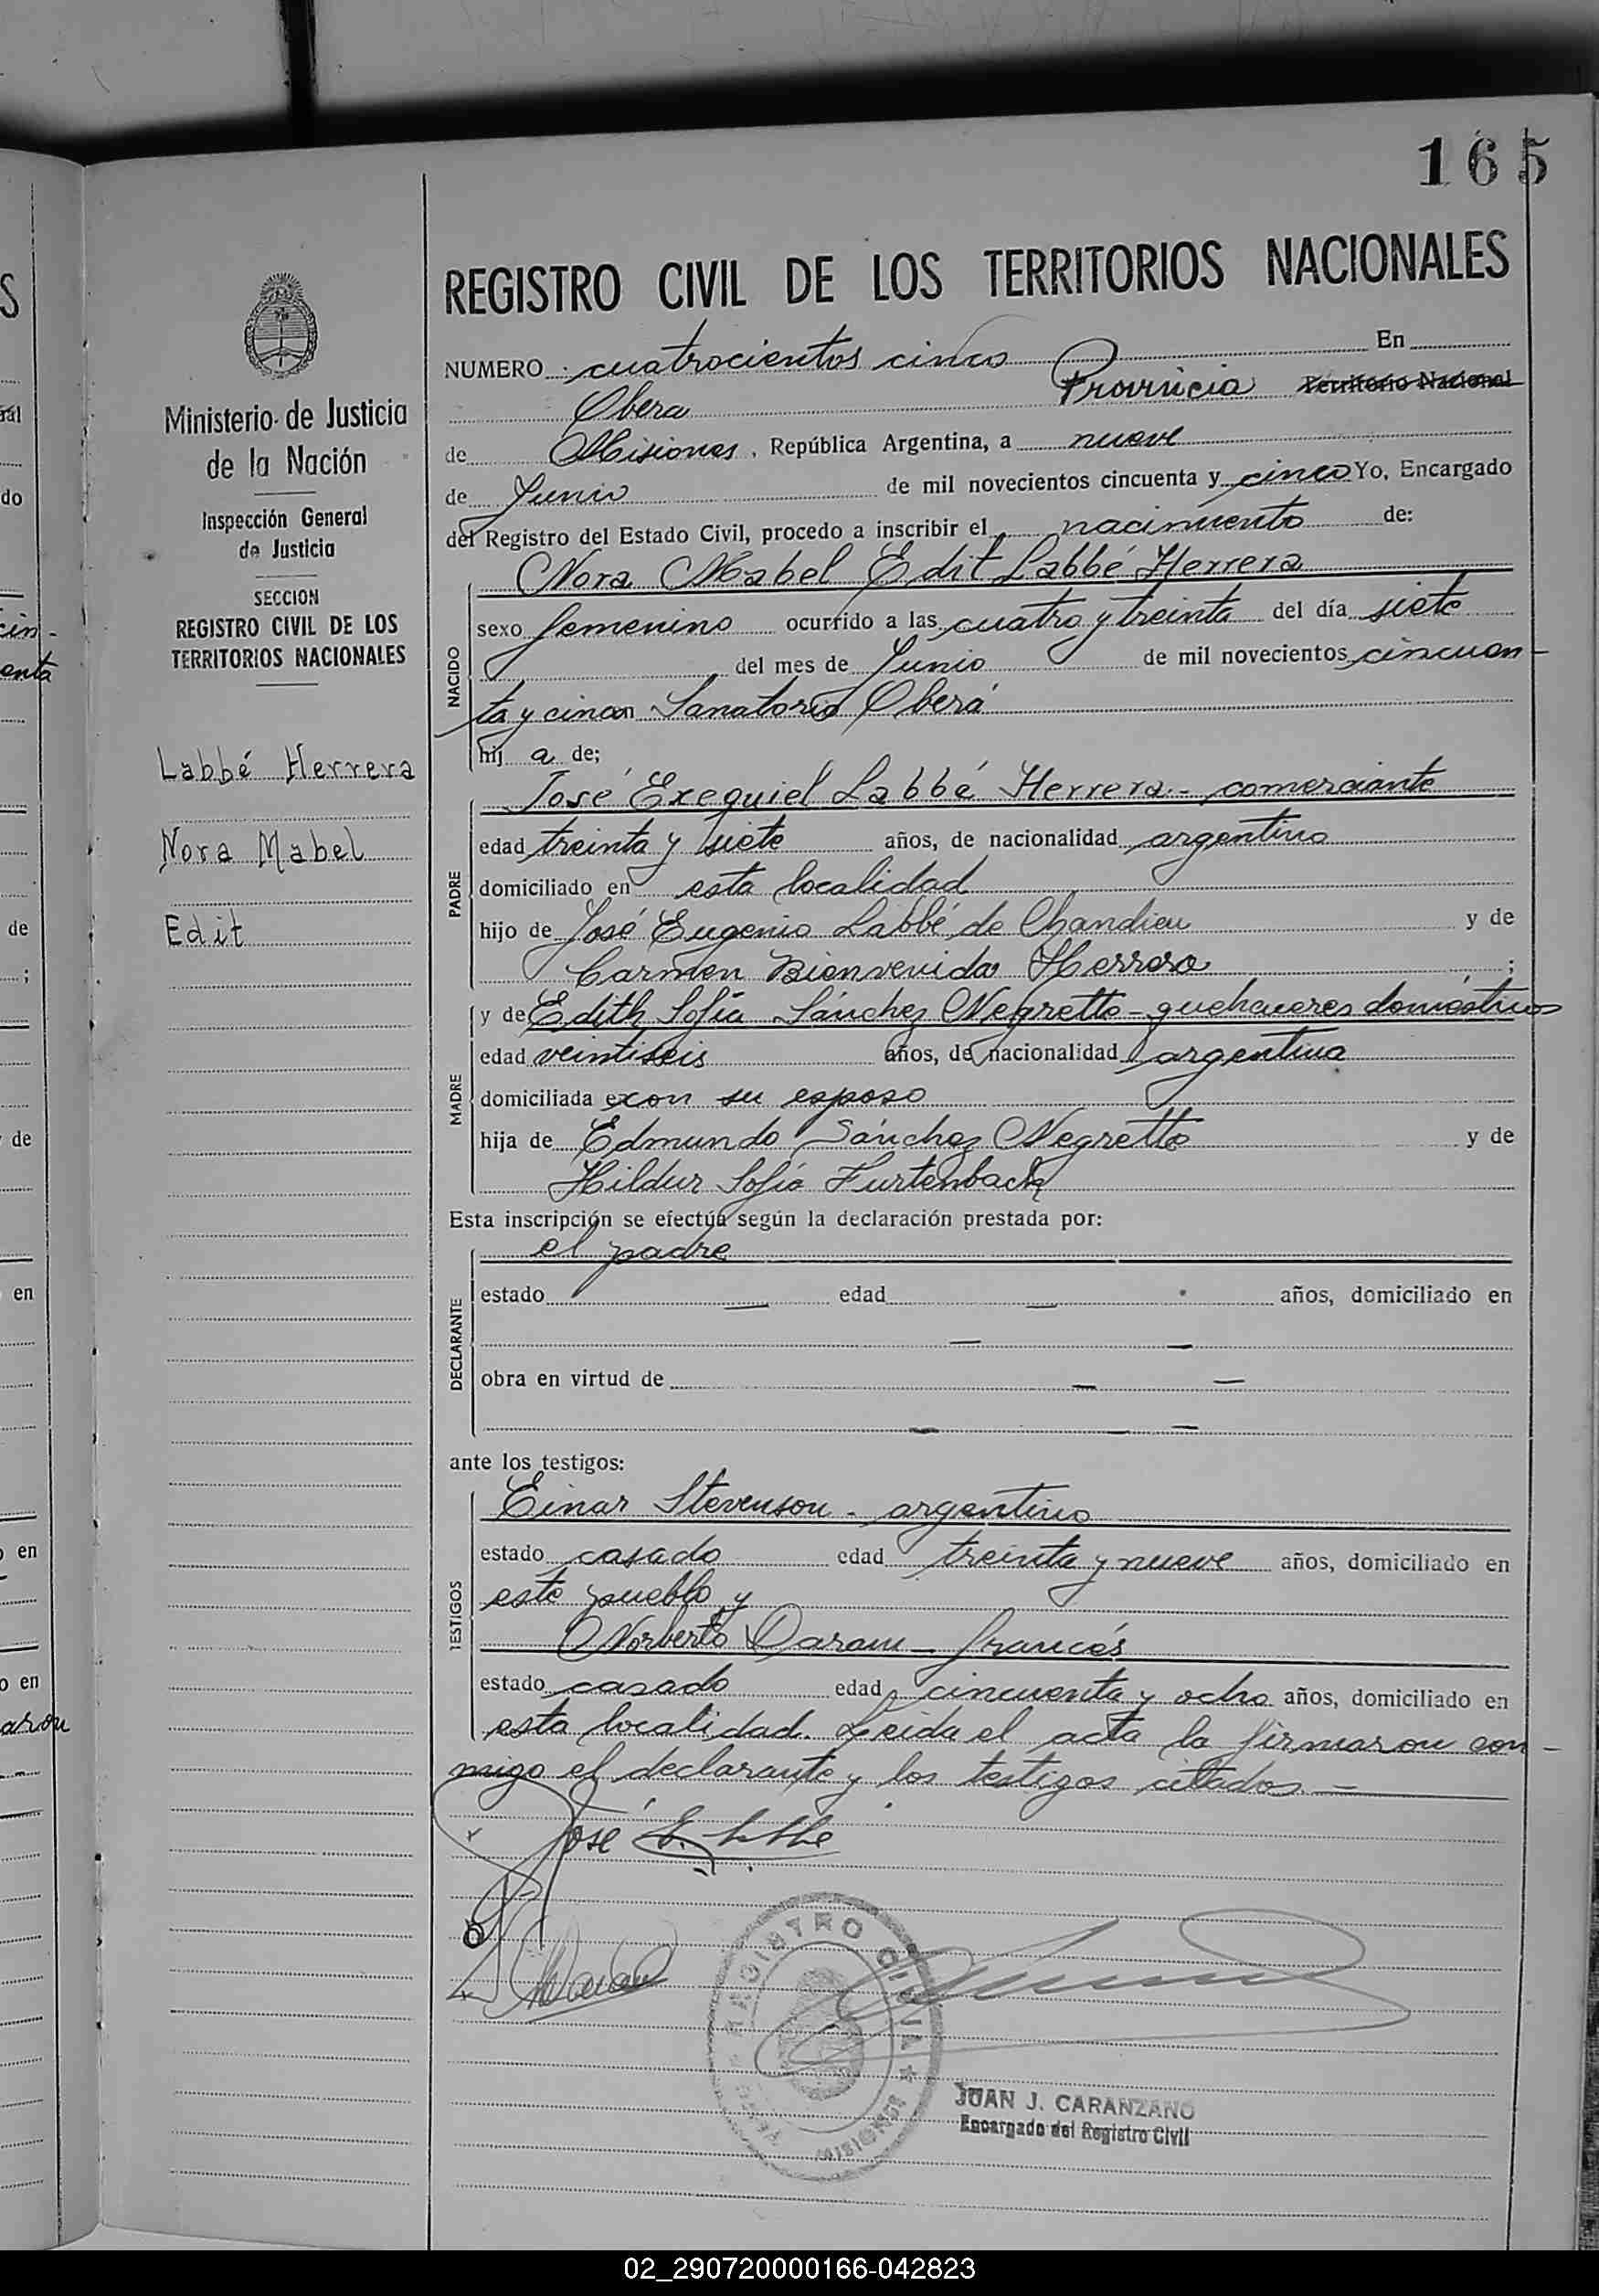 165
REGISTRO CIVIL DE LOS TERRITORIOS NACIONALES
Ministerio de Justicia
de la Nación
Inspección General
de Justicia
SECCION
REGISTRO CIVIL DE LOS
TERRITORIOS NACIONALES
Labbé Herrera
Nora Mabel
Edit
NUMERO cuatrocientos cinco En
Obera Provincia Territorio Nacional
de Misiones, República Argentina, a nueve
de Junio de mil novecientos cincuenta y cinco Yo, Encargado
del Registro del Estado Civil, procedo a inscribir el nacimiento de:
Nora Mabel Edit Labbé Herrera
NACIDO
sexo femenino ocurrido a las cuatro y treinta del día siete
del mes de Junio de mil novecientos cincuen-
ta y cinco Sanatorio Oberá
hij a de;
José Exequiel Labbé Herrera - comerciante
PADRE
edad treinta y siete años, de nacionalidad argentino
domiciliado en esta localidad
hijo de José Eugenio Labbé de Chandieu y de
Carmen Bienvenida Herrera ;
y de Edith Sofía Sánchez Negretto - quehaceres domésticos
MADRE
edad veintiseis años, de nacionalidad argentina
domiciliada con su esposo
hija de Edmundo Sánchez Negretto y de
Hildur Sofía Furtenbach
Esta inscripción se efectúa según la declaración prestada por:
el padre
DECLARANTE
estado — edad — años, domiciliado en
— —
obra en virtud de — —
— — —
ante los testigos:
Einar Stevenson - argentino
TESTIGOS
estado casado edad treinta y nueve años, domiciliado en
este pueblo y
Norberto Daram - francés
estado casado edad cincuenta y ocho años, domiciliado en
esta localidad. Leida el acta la firmaron con-
migo el declarante y los testigos citados —
José E. Labbe
REGISTRO CIVIL
MISIONES
JUAN J. CARANZANO
Encargado del Registro Civil
02_290720000166-042823